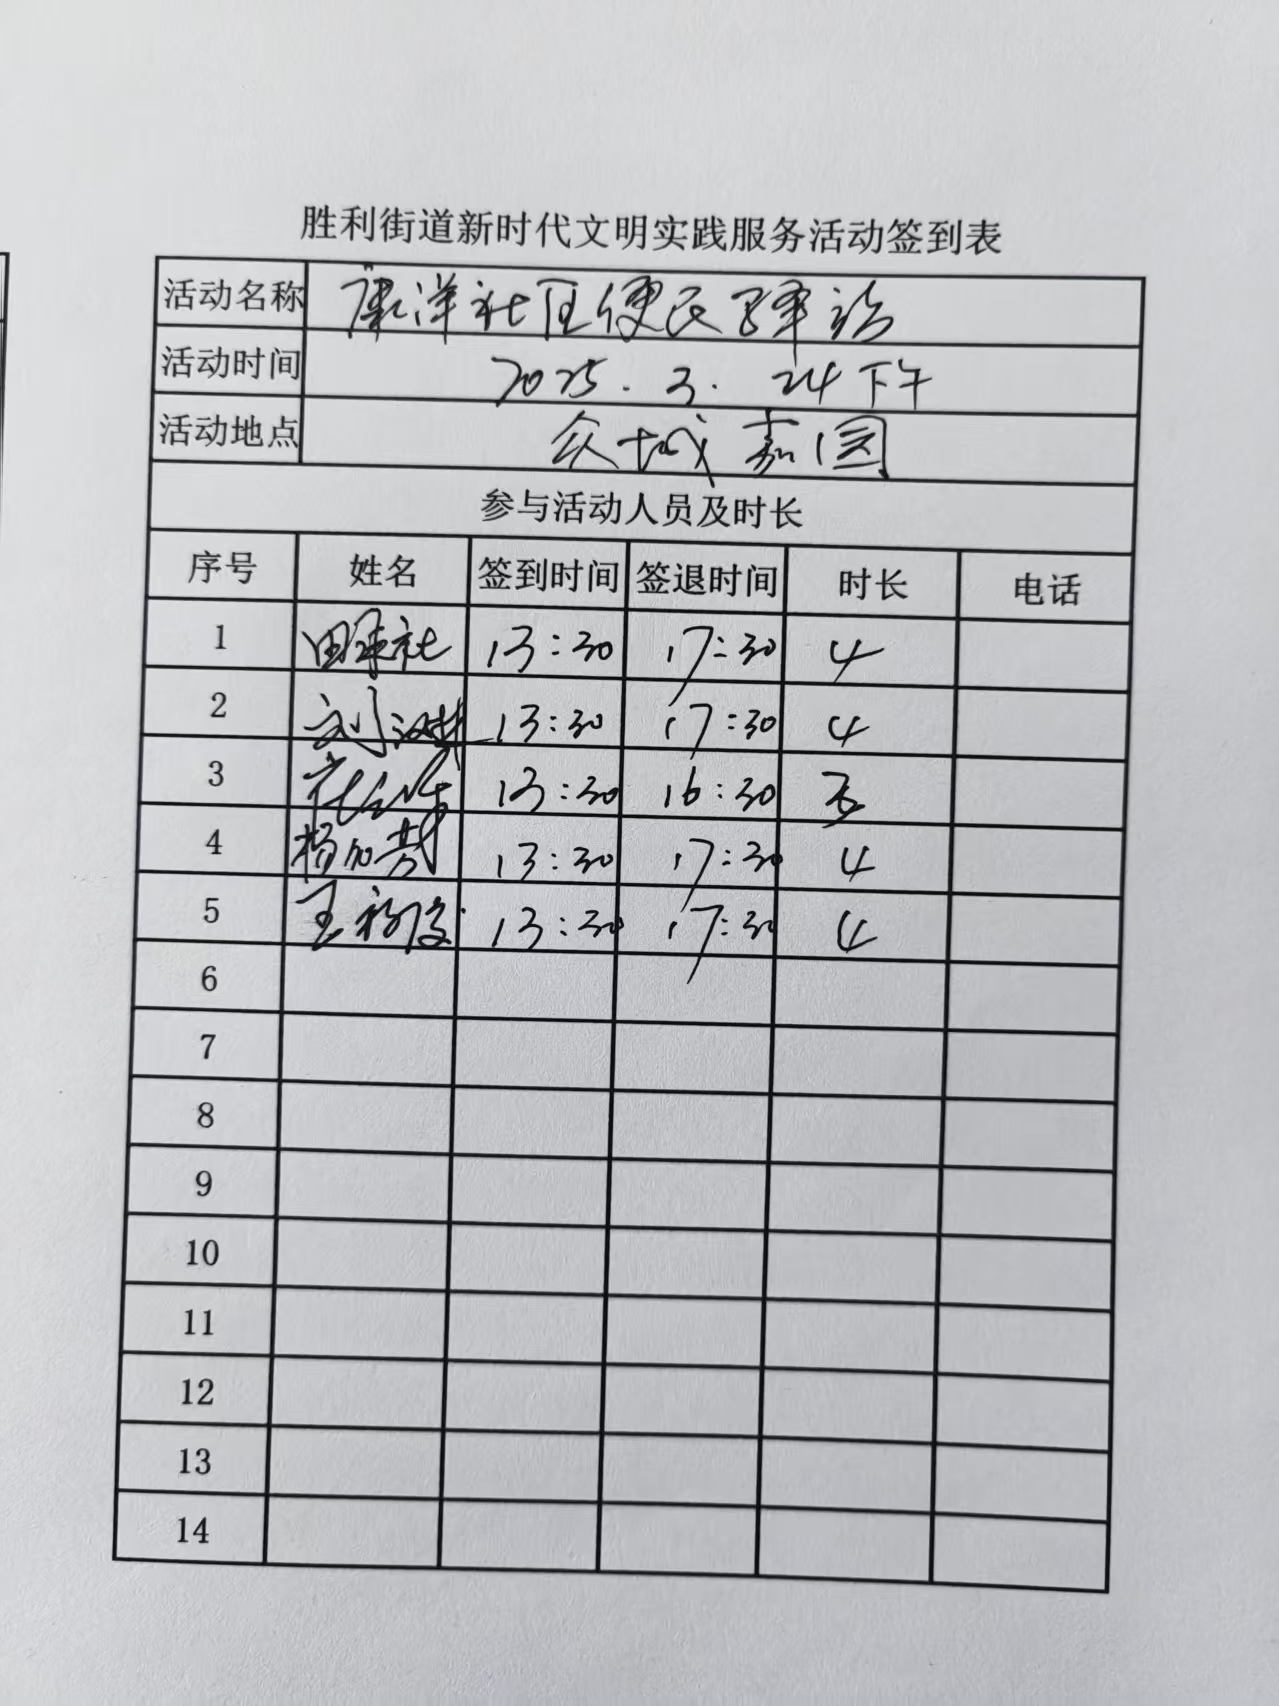 胜利街道新时代文明实践服务活动签到表
活动名称 康洋社区便民驿站
活动时间 2025.3.24下午
活动地点 众城嘉园
参与活动人员及时长
序号 姓名 签到时间 签退时间 时长 电话
1 13:30 17:30 4
2 刘 13:30 17:30 4
3 13:30 16:30 3
4 杨加芳 13:30 17:30 4
5 王 13:30 17:30 4
6
7
8
9
10
11
12
13
14